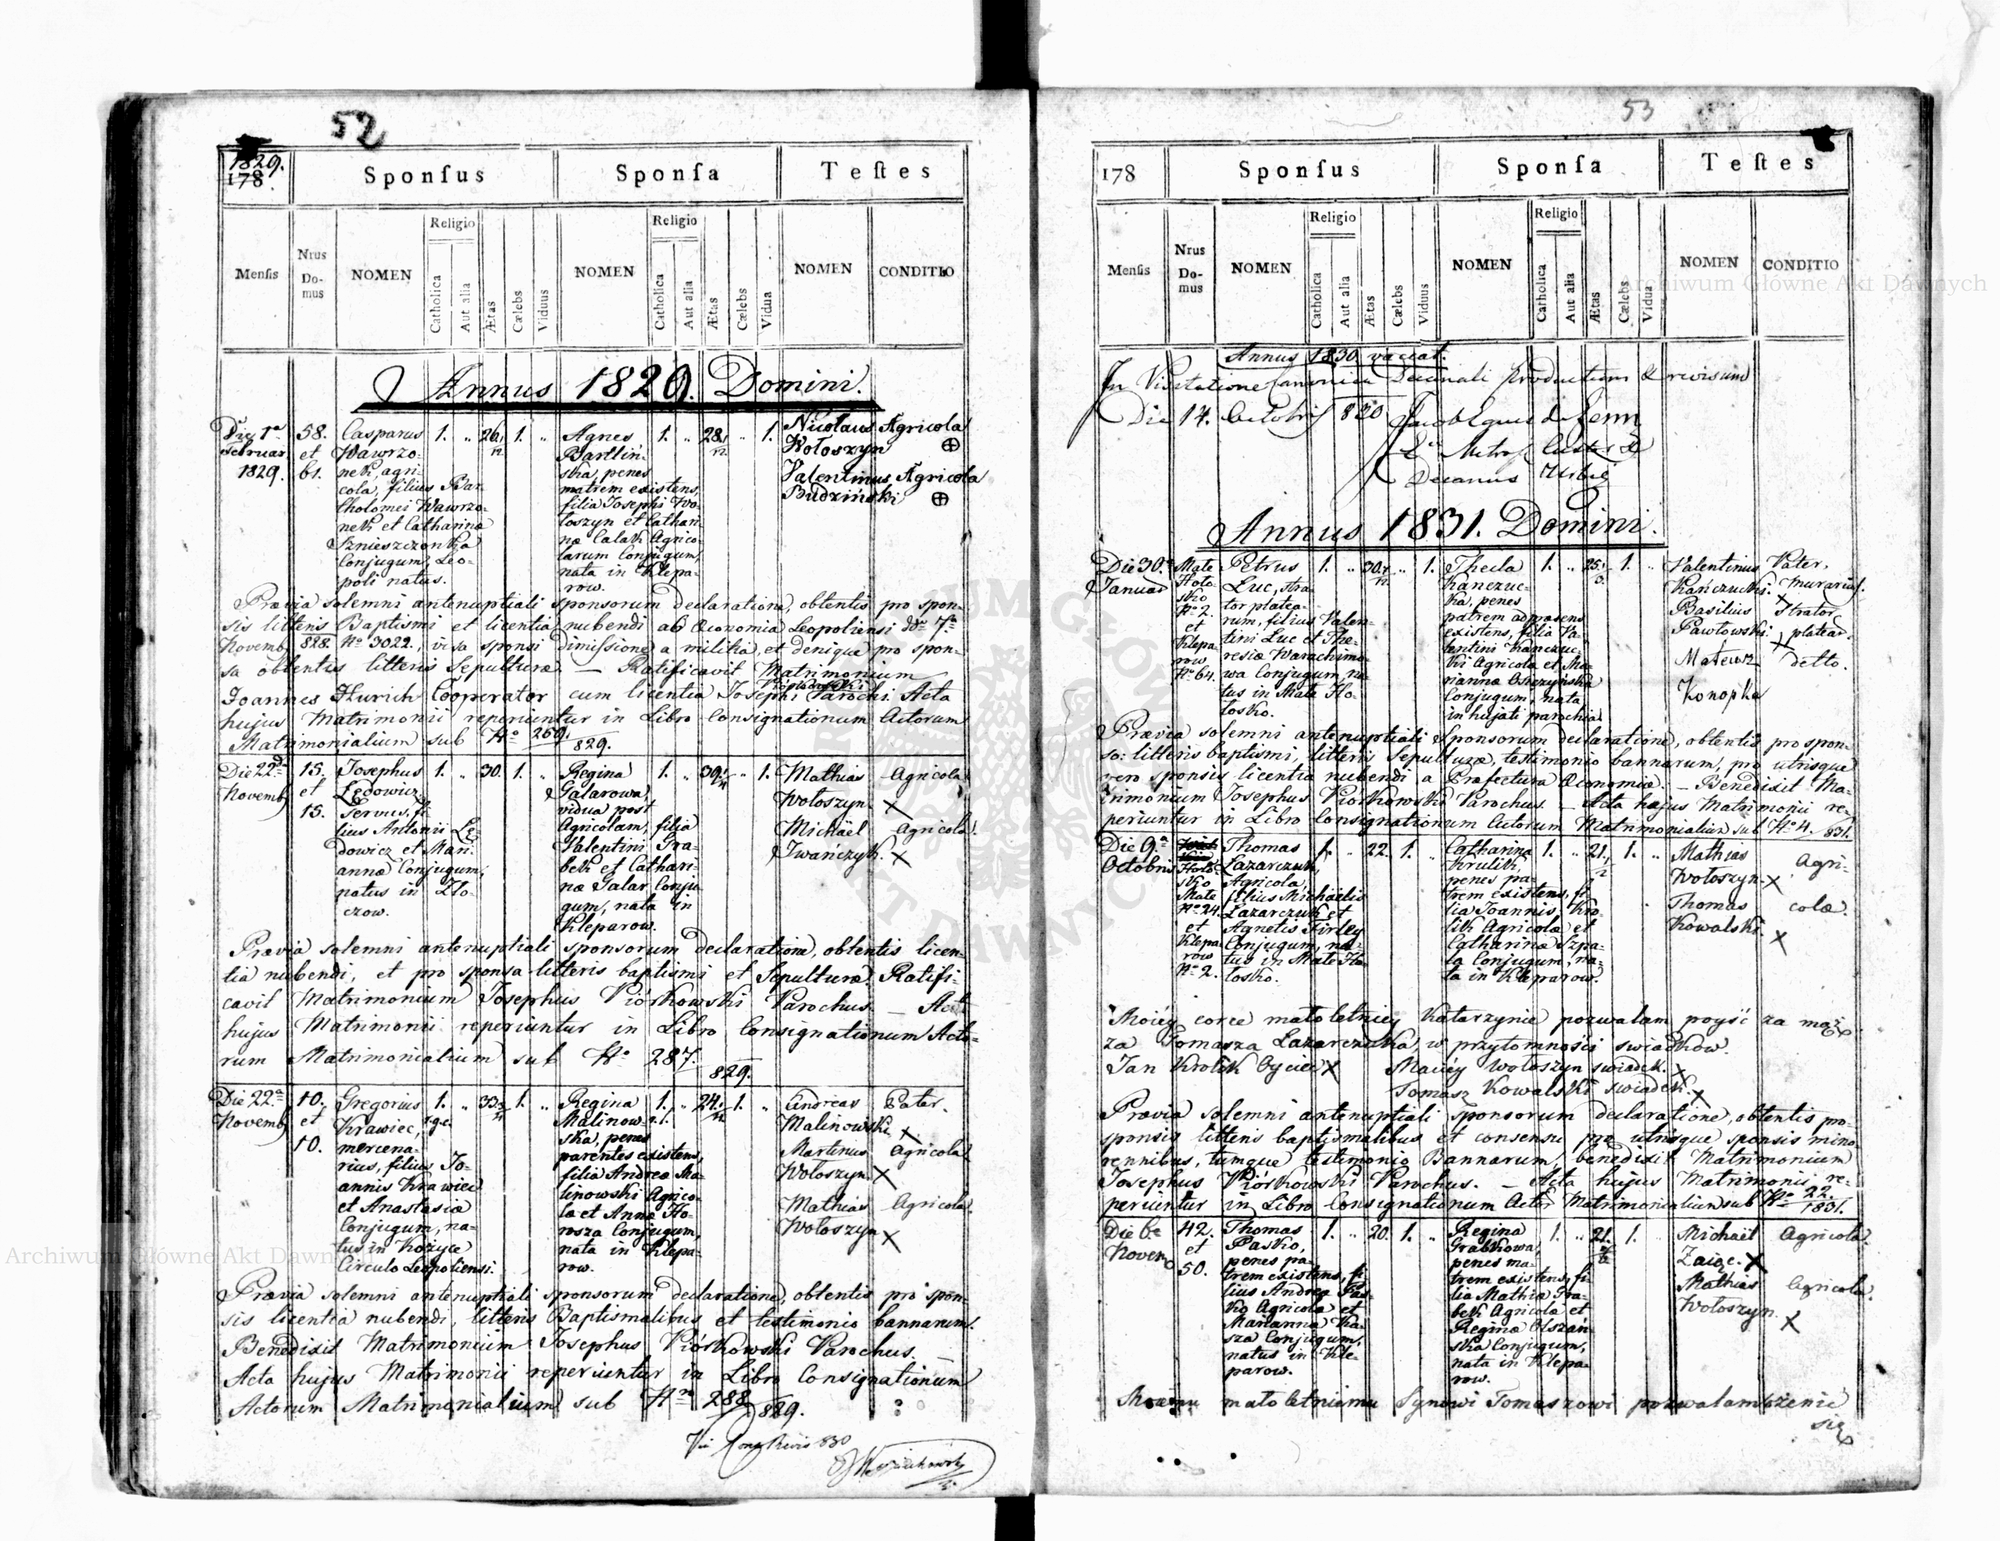 52
1829.
178
Sponſus
Sponſa
Teſtes
Menſis
Nrus Domus
NOMEN
Religio
Catholica
Aut alia
Ætas
Cælebs
Viduus
NOMEN
Religio
Catholica
Aut alia
Ætas
Cælebs
Vidua
NOMEN
CONDITIO
Annus 1829. Domini.
Die 1ª
Februar
1829.
58.
et
61.
Casparus
Wawrzo-
nek, agri-
cola, filius Bar-
tholomei Wawrzo-
nek et Catharinæ
Conjugum, Leo-
poli natus.
1. " 26. 1. "
Agnes
Bartlin-
ska, penes
matrem existens,
filia Josephi Wo-
łoszyn et Cathari-
næ Calak Agrico-
larum Conjugum,
nata in Klepa-
row.
1. " 28. " 1.
Nicolaus Agricola
Wołoszyn
Valentinus Agricola
Budziński
Prævia solemni antenuptiali sponsorum declaratione, obtentis pro spon-
sis litteris Baptismi et licentia nubendi ab Œconomia Leopoliensi ddº 7ª
Novemb 828. Nº 3022, visa sponsi dimissione a militia, et denique pro spon-
sa obtentis litteris Sepulturæ — Ratificavit Matrimonium
Joannes Hurich Cooperator cum licentia Josephi Parochi Acta
hujus Matrimonii reperiuntur in Libro Consignationum Actorum
Matrimonialium sub Nº 269. 829.
Die 22ª
Novemb
15.
et
15.
Josephus
Ledowicz
Servus, fi-
lius Antonii Le-
dowicz et Mari-
annæ Conjugum,
natus in Zło-
czow.
1. " 30. 1. "
Regina
Galarowa,
vidua post
Agricolam, filia
Valentini Gra-
bek et Cathari-
næ Galar Conju-
gum, nata in
Kleparow.
1. " 39. " 1.
Mathias Agricola
Wołoszyn. X
Michäel Agricola
Iwańczyk. X
Prævia solemni antenuptiali sponsorum declaratione, obtentis licen-
tia nubendi, et pro sponsa litteris baptismi et Sepulturæ. Ratifi-
cavit Matrimonium Josephus Piórkowski Parochus. — Acta
hujus Matrimonii reperiuntur in Libro Consignationum Acto-
rum Matrimonialium sub Nº 287. 829.
Die 22ª
Novemb
10.
et
10.
Gregorius
Krawiec,
mercena-
rius, filius Jo-
annis Krawiec
et Anastasiæ
Conjugum, na-
tus in Kożyce
Circulo Leopoliensi.
1. " 33. 1. "
Regina
Malinow-
ska, penes
parentes existens,
filia Andreæ Ma-
linowski Agrico-
læ et Annæ Ho-
rosza Conjugum,
nata in Klepa-
row.
1. " 24. 1. "
Andreas Pater.
Malinowski X
Martinus Agricola
Wołoszyn X
Mathias Agricola
Wołoszyn X
Prævia solemni antenuptiali sponsorum declaratione, obtentis pro spon-
sis licentia nubendi, litteris Baptismalibus et testimonio bannorum.
Benedixit Matrimonium Josephus Piórkowski Parochus. —
Acta hujus Matrimonii reperiuntur in Libro Consignationum
Actorum Matrimonialium sub Nro 288 829.
53
178
Sponſus
Sponſa
Teſtes
Menſis
Nrus Domus
NOMEN
Religio
Catholica
Aut alia
Ætas
Cælebs
Viduus
NOMEN
Religio
Catholica
Aut alia
Ætas
Cælebs
Vidua
NOMEN
CONDITIO
Annus 1830 vaccat.
In Visitatione Canonica Decanali productum & revisum
Die 14. Octobris 830
Decanus Urbis
Annus 1831. Domini.
Die 30.
Januar
Mate
Hoło-
sko
Nº 2.
et
Klepa-
row
Nº 64.
Petrus
Luc, stra-
tor platea-
rum, filius Valen-
tini Luc et The-
resiæ Warachimo-
wa Conjugum, na-
tus in Mate Ho-
łosko.
1. " 30. " 1.
Thecla
Kanczuc-
ka, penes
patrem adpræsens
existens, filia Va-
lentini Kanczuc-
ki Agricola et Ma-
riannæ
Conjugum, nata
in hujati parochia.
1. " 25. 1. "
Valentinus Pater,
Kańczucki murarius.
Basilius Strator
Pawłowski platear.
Matewsz detto.
Konopka
Prævia solemni antenuptiali Sponsorum declaratione, obtentis pro spon-
so: litteris baptismi, litteris Sepulturæ, testimonio bannorum, pro utrisque
vero sponsis licentia nubendi a Præfectura Œconomiæ. — Benedixit Ma-
trimonium Josephus Piórkowski Parochus. — Acta hujus Matrimonii re-
periuntur in Libro Consignationum Actorum Matrimonialium sub Nº 4. 831.
Die 9ª
Octobris
Hoło-
sko
Mate
Nº 24.
et
Klepa-
row
Nº 2.
Thomas
Lazarczuk,
Agricola,
filius Michaelis
Lazarczuk et
Agnetis Kirley
Conjugum, na-
tus in Mate Ho-
łosko.
1. " 22. 1. "
Catharina
Krulik,
penes pa-
trem existens, fi-
lia Joannis Kro-
lik Agricola et
Catharinæ Szpa-
la Conjugum, na-
ta in Kleparow.
1. " 21. 1. "
Mathias Agri-
Wołoszyn X
Thomas colæ.
Kowalski. X
Moięy corce małoletniey Katarzynie pozwalam poyść za mąż
za Tomasza Lazarczuka, w przytomności swiadków.
Jan Krolik Oyciec X Maciey Wołoszyn swiadek. X
Tomasz Kowalski swiadek. X
Prævia solemni antenuptiali sponsorum declaratione, obtentis pro
sponsis litteris baptismalibus et consensu pro utrisque sponsis mino-
rennibus, tumque testimonio Bannorum, benedixit Matrimonium
Josephus Piórkowski Parochus. — Acta hujus Matrimonii re-
periuntur in Libro Consignationum Actor Matrimonialium sub Nº 22. 1831.
Die 6ª
Novem
42.
et
50.
Thomas
Pasko,
penes pa-
trem existens, fi-
lius Andreæ Pas-
ko Agricola et
Mariannæ Ka-
sza Conjugum,
natus in Kle-
parow.
1. " 20. 1. "
Regina
Grabkowa,
penes ma-
trem existens, fi-
lia Mathiæ Gra-
bek Agricola et
Reginæ Olszań-
ska Conjugum,
nata in Klepa-
row.
1. " 21. 1. "
Michael Agricola.
Zaiąc. X
Mathias Agricola.
Wołoszyn. X
Moiemu małoletniemu Synowi Tomaszowi pozwalam żenić
się
Archiwum Główne Akt Dawnych
Archiwum Główne Akt Dawnych
ARCHIWUM GŁÓWNE AKT DAWNYCH